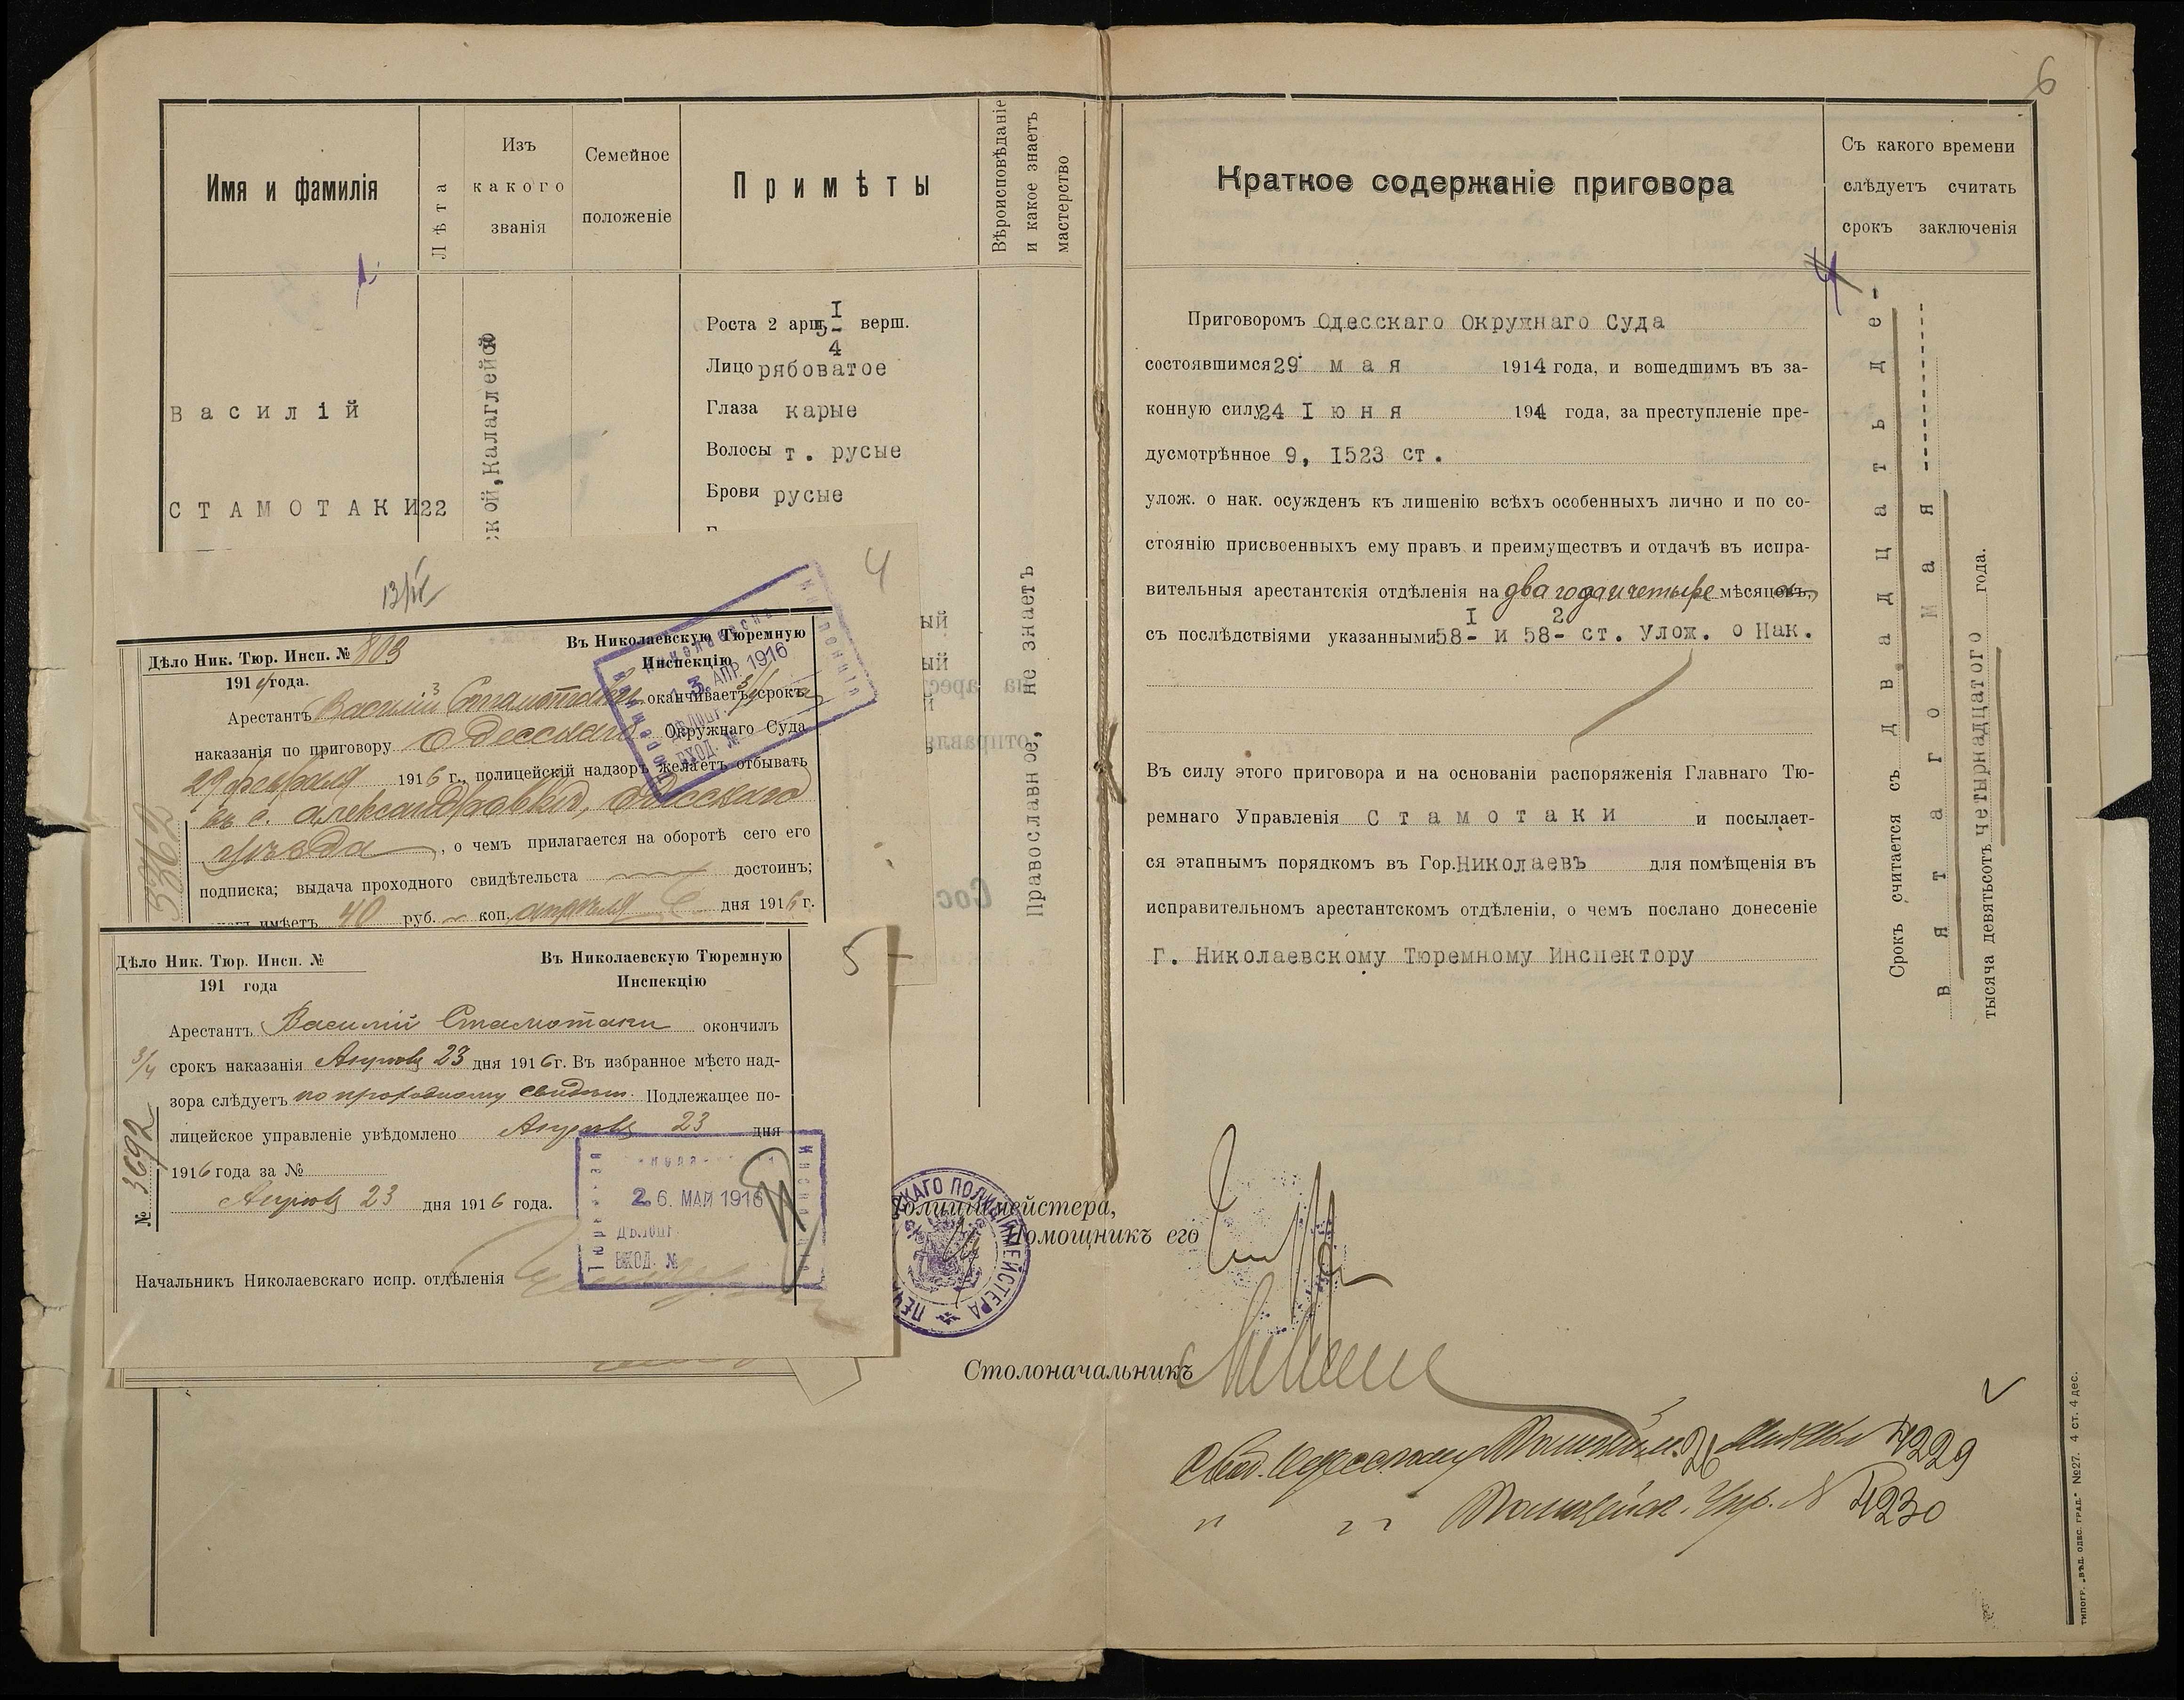 6
Имя и фамилія
Лѣта
Изъ
какого
званія
Семейное
положеніе
Примѣты
Вѣроисповѣданіе
и какое знаетъ
мастерство
Василій
СТАМОТАКИ
22
ской, Калаглейской
Роста 2 арш. 5 1/4 верш.
Лицо рябоватое
Глаза карые
Волосы т. русые
Брови русые
Православное, не знаетъ
4
Дѣло Ник. Тюр. Инсп. № 803
1914 года.
Въ Николаевскую Тюремную
Инспекцію
13 АПР 1916
ВХОД. №
Арестантъ Василій Стамотаки оканчиваетъ 3/4 срокъ
наказанія по приговору Одесскаго Окружнаго Суда
29 февраля 1916 г., полицейскій надзоръ желаетъ отбывать
въ с. Александровкѣ, Одесскаго
уѣзда, о чемъ прилагается на оборотѣ сего его
подписка; выдача проходного свидѣтельства достоинъ;
имѣетъ 40 руб. — коп. апрѣля дня 1916 г.
3362
5
Дѣло Ник. Тюр. Инсп. №
191 года
Въ Николаевскую Тюремную
Инспекцію
Арестантъ Василій Стамотаки окончилъ
3/4 срокъ наказанія Апрѣля 23 дня 1916 г. Въ избранное мѣсто над-
зора слѣдуетъ по проходному свидѣт. Подлежащее по-
лицейское управленіе увѣдомлено Апрѣля 23 дня
1916 года за №
Апрѣля 23 дня 1916 года.
№ 3692
26. МАЙ 1916
ВХОД. №
Начальникъ Николаевскаго испр. отдѣленія
Краткое содержаніе приговора
Съ какого времени
слѣдуетъ считать
срокъ заключенія
Приговоромъ Одесскаго Окружнаго Суда
состоявшимся 29 мая 1914 года, и вошедшимъ въ за-
конную силу 24 Іюня 194 года, за преступленіе пре-
дусмотрѣнное 9, I523 ст.
улож. о нак. осужденъ къ лишенію всѣхъ особенныхъ лично и по со-
стоянію присвоенныхъ ему правъ и преимуществъ и отдачѣ въ испра-
вительныя арестантскія отдѣленія на два года и четыре мѣсяцовъ,
съ послѣдствіями указанными 58-I и 58-2 ст. Улож. о Нак.
Въ силу этого приговора и на основаніи распоряженія Главнаго Тю-
ремнаго Управленія Стамотаки и посылает-
ся этапнымъ порядкомъ въ Гор. Николаевъ для помѣщенія въ
исправительномъ арестантскомъ отдѣленіи, о чемъ послано донесеніе
Г. Николаевскому Тюремному Инспектору
Срокъ считается съ двадцать де-
вятаго Мая
тысяча девятьсотъ четырнадцатого года.
Полиціймейстера,
Помощникъ его
Столоначальникъ
4229
Полицейск. Упр. № 4230
ТИПОГР. „ВѢД. ОДЕС. ГРАД.“ №27. 4 СТ. 4 дес.